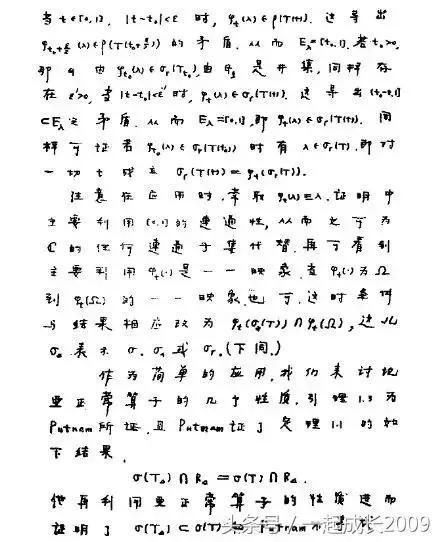 当 t∈[0,1], |t-t₀|<ε 时, φₜ(λ)∈ρ(T(t)). 这导出
的矛盾. 从而 E_λ=[0,1]. 若 t₀>0,
那么由 φ_{t₀}(λ)∈σᵣ(T_{t₀}), 由 是开集, 同样存
在 ε'>0, 当 |t-t₀|<ε' 时, φₜ(λ)∈σᵣ(T(t)). 这导出
⊂E_λ之矛盾. 从而 E_λ=[0,1], 即 φₜ(λ)∈σᵣ(T(t)). 同
样可证若 φ_{t₀}(λ)∈σᵣ(T(t₀)) 时有 λ∈σᵣ(T). 即对
一切 t 成立 σᵣ(T(t))=φₜ(σᵣ(T)).
注意在应用时, 常取 φₜ(λ)≡λ. 证明中
主要利用 [0,1] 的连通性, 从而它可为
C 的任何连通子集代替. 再可看到
主要利用 φₜ(·) 是一一映象, 当 φₜ(·) 为 Ω
到 φₜ(Ω) 的一一映象也可. 这时条件
与结果相应改为 φₜ(σₐ(T))∩φₜ(Ω), 这儿
σₐ 表示 σ, σₐ 或 σᵣ. (下同.)
作为简单的应用, 我们来讨论
亚正常算子的几个性质. 引理 1.3 为
Putnam 所证, 且 Putnam 证了定理 1.1 的如
下结果.
σ(Tₐ)∩Rₐ=σ(T)∩Rₐ.
他再利用亚正常算子的性质进而
证明了 σ(Tₐ)⊂σ(T) Putnam
头条号 / 一起成长2009